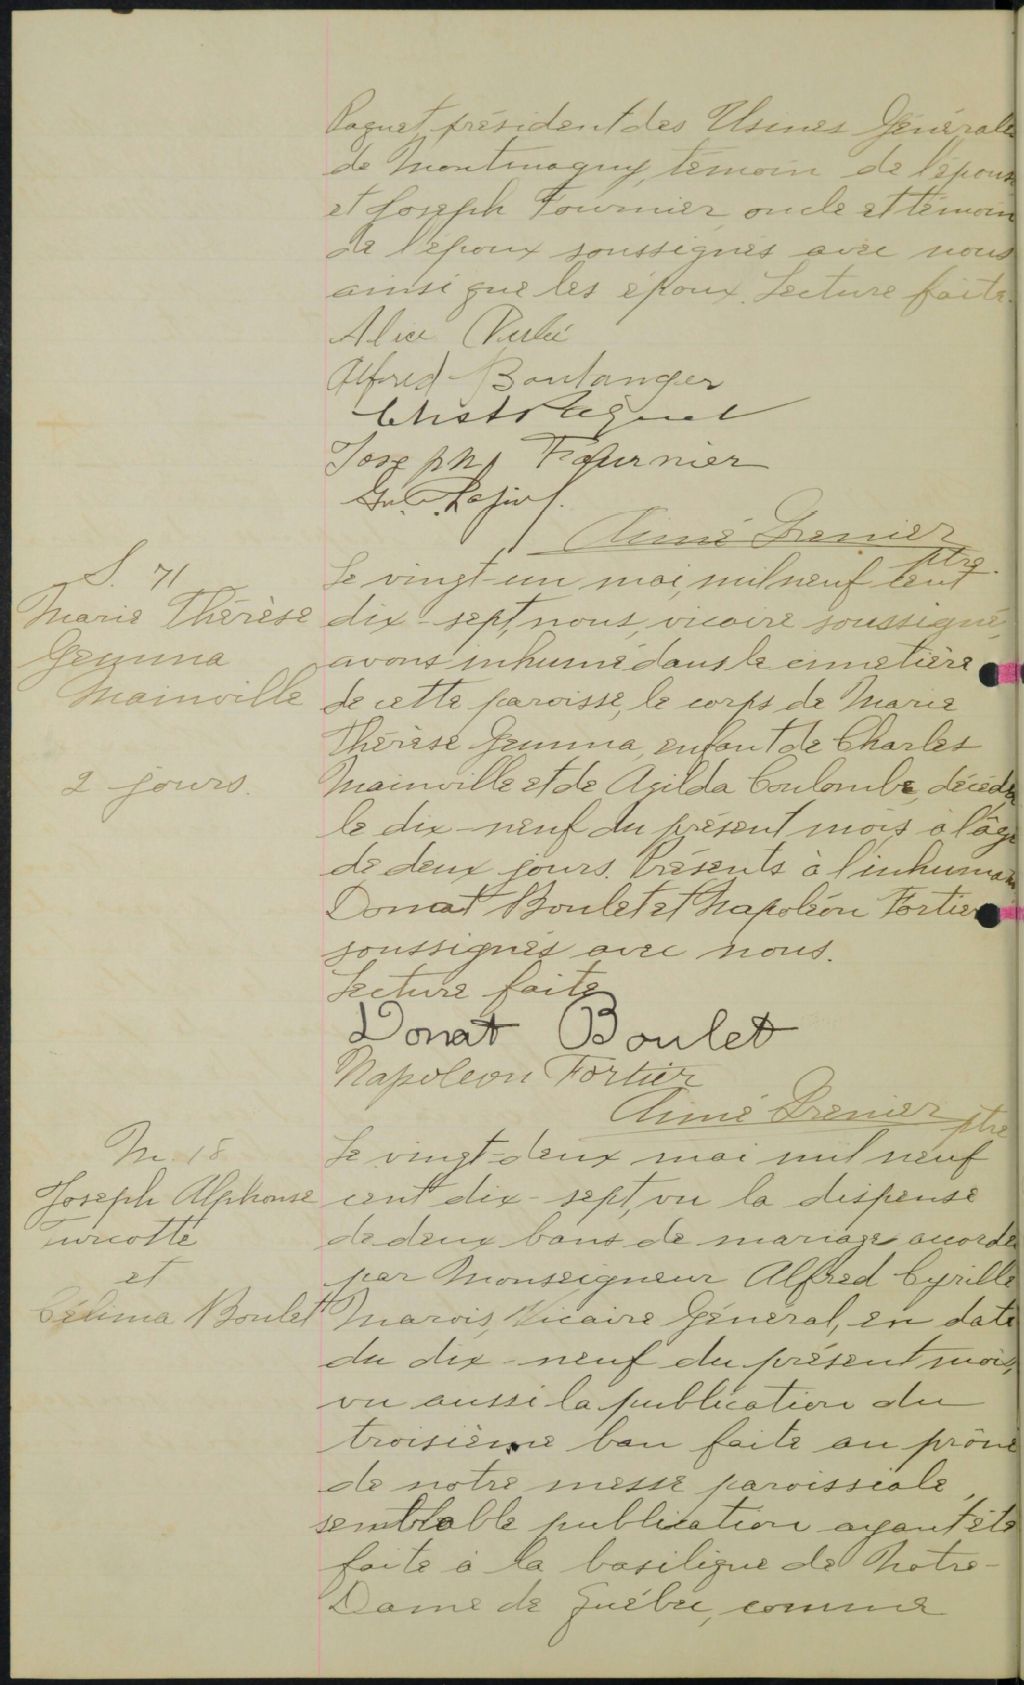 Paquet, président des Usines Générales
de Montmagny, témoin de l'épouse
et Joseph Fournier, oncle et témoin
de l'époux soussignés avec nous
ainsi que les époux. Lecture faite.
Alice
Alfred Boulanger
Joseph Fournier
Aimé Grenier
ptre.
S. 71
Marie Thérèse
Gemma
Mainville
2 jours.
Le vingt-un mai, mil neuf cent
dix-sept, nous, vicaire soussigné,
avons inhumé dans le cimetière
de cette paroisse, le corps de Marie
Thérèse Gemma, enfant de Charles
Mainville et de Azilda Coulombe, décédée
le dix-neuf du présent mois à l'âge
de deux jours. Présents à l'inhumation
Donat Boulet et Napoléon Fortier
soussignés avec nous.
Lecture faite
Donat Boulet
Napoleon Fortier
Aimé Grenier ptre
M. 18
Joseph Alphonse
Turcotte
et
Célima Boulet
Le vingt-deux mai mil neuf
cent dix-sept, vu la dispense
de deux bans de mariage accordée
par Monseigneur Alfred Cyrille
Marois, Vicaire Général, en date
du dix-neuf du présent mois,
vu aussi la publication du
troisième ban faite au prône
de notre messe paroissiale,
semblable publication ayant été
faite à la basilique de Notre-
Dame de Québec, comme